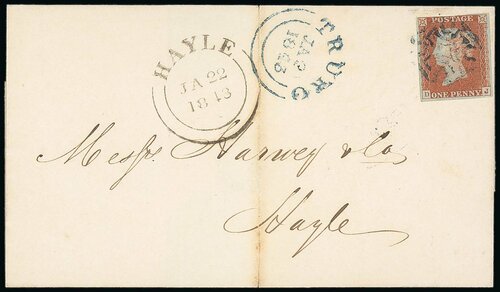 HAYLE
JA 22
1843
TRURO
JA 2
1843
POSTAGE
ONE PENNY
J
Messrs Harvey & Co
Hayle